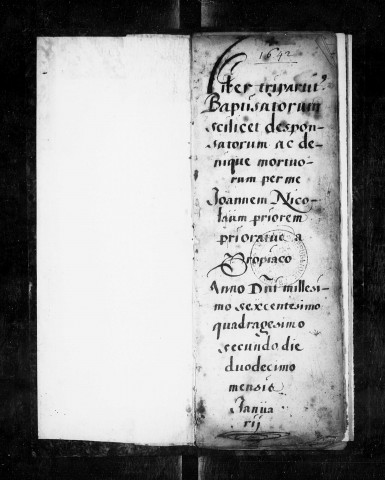 1642
Liber tripartit9
Baptisatorum
scilicet despon-
satorum ac de-
nique mortuo-
rum per me
Joannem Nico-
laum priorem
prioratus a
Bropiaco
Anno Dnī millesi-
mo sexcentesimo
quadragesimo
secundo die
duodecimo
mensis
Janua
rij